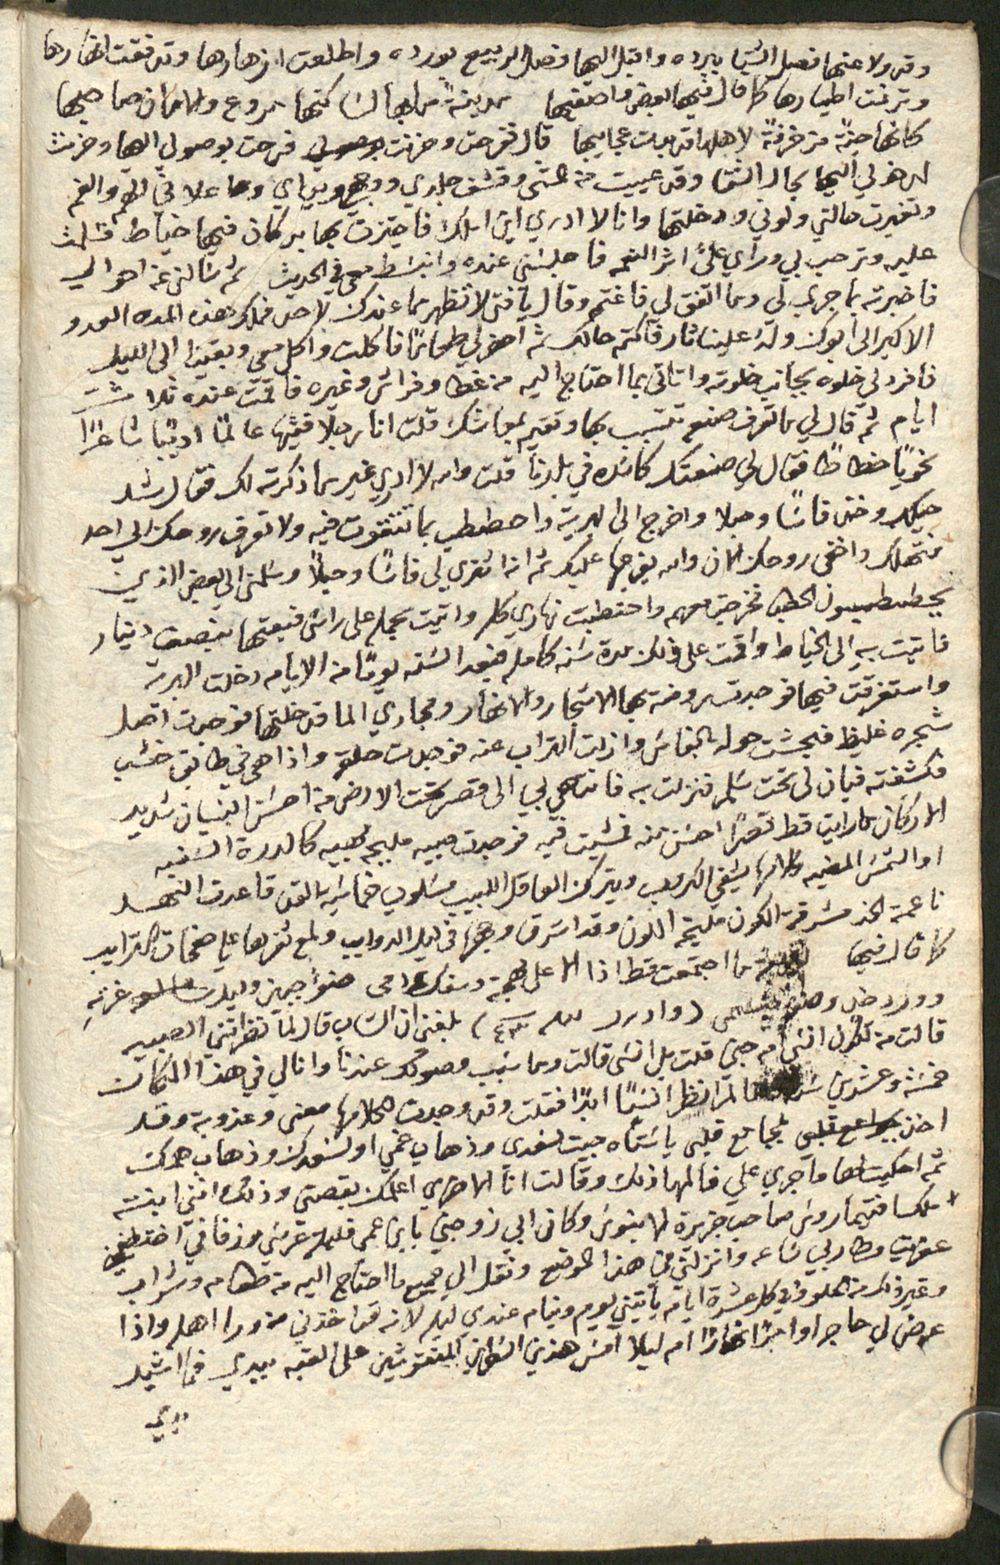 وقد ولا عنها فصل الشتا ببرده واقبل اليها فصل الربيع بورده واطلعت ازهارها وتدفقت انهارها
وترنت اطيارها كما قال فيها بعض واصفيها مدينة ما بها لساكنها مروع والامان صاحبها
كانها جنة مزخرفة لاهلها قد بدت عجايبها قال ففرحت وحزنت فرحت بوصولي اليها وحزنت
لدخولي اليها بحال الشقا وقد عييت من المشي وقشف جلدي ووجهي ويداي وعلاني الهم والغم
وتغيرت حالتي ولوني ودخلتها وانا لا ادري اين اسلك فاجتزت بها بدكان فيها خياط فسلمت
عليه وترحب بي وراى علي اثر النعم فاجلسني عنده وانبسط معي في الحديث ثم سالني عن احوالي
فاخبرته بما جرى لي وما اتفق لي فاغتم وقال يا فتى لا تظهر ما عندك لاحد فملك هذه المدينة العدو
الاكبر الى ابوك وله علينا ثار فاكتم حالك ثم احضر لي طعاما فاكلت واكل معي وبقينا الى الليل
فافرد لي خلوه بجانب خلوته واتاني بما احتاج اليه من غطا وفراش وغيره فاقمت عنده ثلاثت
ايام ثم قال لي ما تعرف صنعه تتسبب بها وتقيم بمعاشك قلت انا رجلا فقيها عالما اديبا شاعرا
نحويا خطاطا فقال لي صنعتك كاسده في بلدنا قلت والله لا ادري غير ما ذكرته لك فقال شد
حيلك وخذ فاسا وحبلا واخرج الى البرية واحطب بما تتقوت فيه ولا تعرف روحك الى احد
فتهلك واخفي روحك الان والله يفرجها عليك ثم انه اشترى لي فاسا وحبلا وسلمني الى بعض الذين
يحطبون الحطب فخرجت معهم واحتطبت نهاري كله واتيت بحمله على راسي فبعتها بنصف دينار
فاتيت به الى الخياط واقمت على ذلك مدة سنه كامله فبعد السنه يوما من الايام دخلت البريه
واستغرقت فيها فوجدت روضه بها الاشجار والانهار ومجاري الما فدخلتها فوجدت اصل
شجره غليظ فبحشت حوله بالفاس وازلت التراب عنه فوجدت حلقه واذا هي في طابق خشب
فكشفته فبان لي تحت سلم فنزلت به فانتهى بي الى قصر تحت الارض من احسن البنيان شديد
الاركان ما رايت قط قصرا احسن منه فمشيت فيه فوجدت صبيه مليحه بهيه كالدرة السنيه
او الشمس المضيه كلامها يشفي الكروب ويترك العاقل اللبيب مسلوب خماسية القد قاعدة النهد
ناعمة الخد مشرقة الكون مليحة اللون وقد اشرق وجهها في ليل الدوايب ولمع ثغرها على صفحات الترايب
كما قال فيها ما اجتمعت قط اذا الا على مهجة وسفك دمى ضوء جبين وليل غرته
وورد خد
قالت من تكون انسي ام جني قلت بل انسي قالت وما سبب وصولك عندنا وانا لي في هذا المكان
خمسة وعشرين سنه لم انظر انسيا ابدا فقلت وقد وجدت لكلامها معنى وعذوبة وقد
اخذ بمجامع قلبي يا ستاه جيت لسعدي وذهاب غمي او لسعدك وذهاب همك
ثم احكيت لها ما جرى علي فالمها ذلك وقالت انا الاخرى اعلمك بقصتي وذلك انني ابنت
ملك صاحب جزيرة الابنوس وكان ابي زوجني بابن عمي فليلة عرسي وزفافي اختطفني
عفريت وطار بي ساعه وانزلني في هذا الموضع ونقل الي جميع ما احتاج اليه من طعام وشراب
وغيره في كل عشرة ايام ياتيني يوم وينام عندي ليله لانه قد اخذني من ورا اهله واذا
عرض لي حاجه نهارا ام ليلا امس هذين السطرين المنقوشين على القبه بيدي فما اشيل
يدي